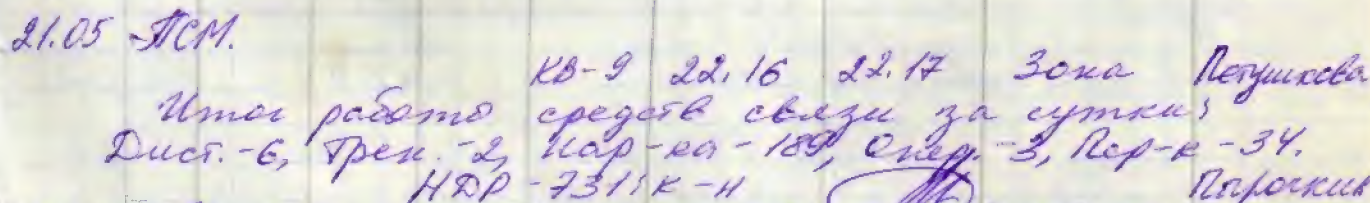 21.05 ПСМ.
КВ-9 22.16 22.17 Зона Петушкова
Итог работы средств связи за сутки:
Дист.-6, Трен.-2, Кар-ка-189, Опер.-3, Пер-к-34.
НДР-731: К-н